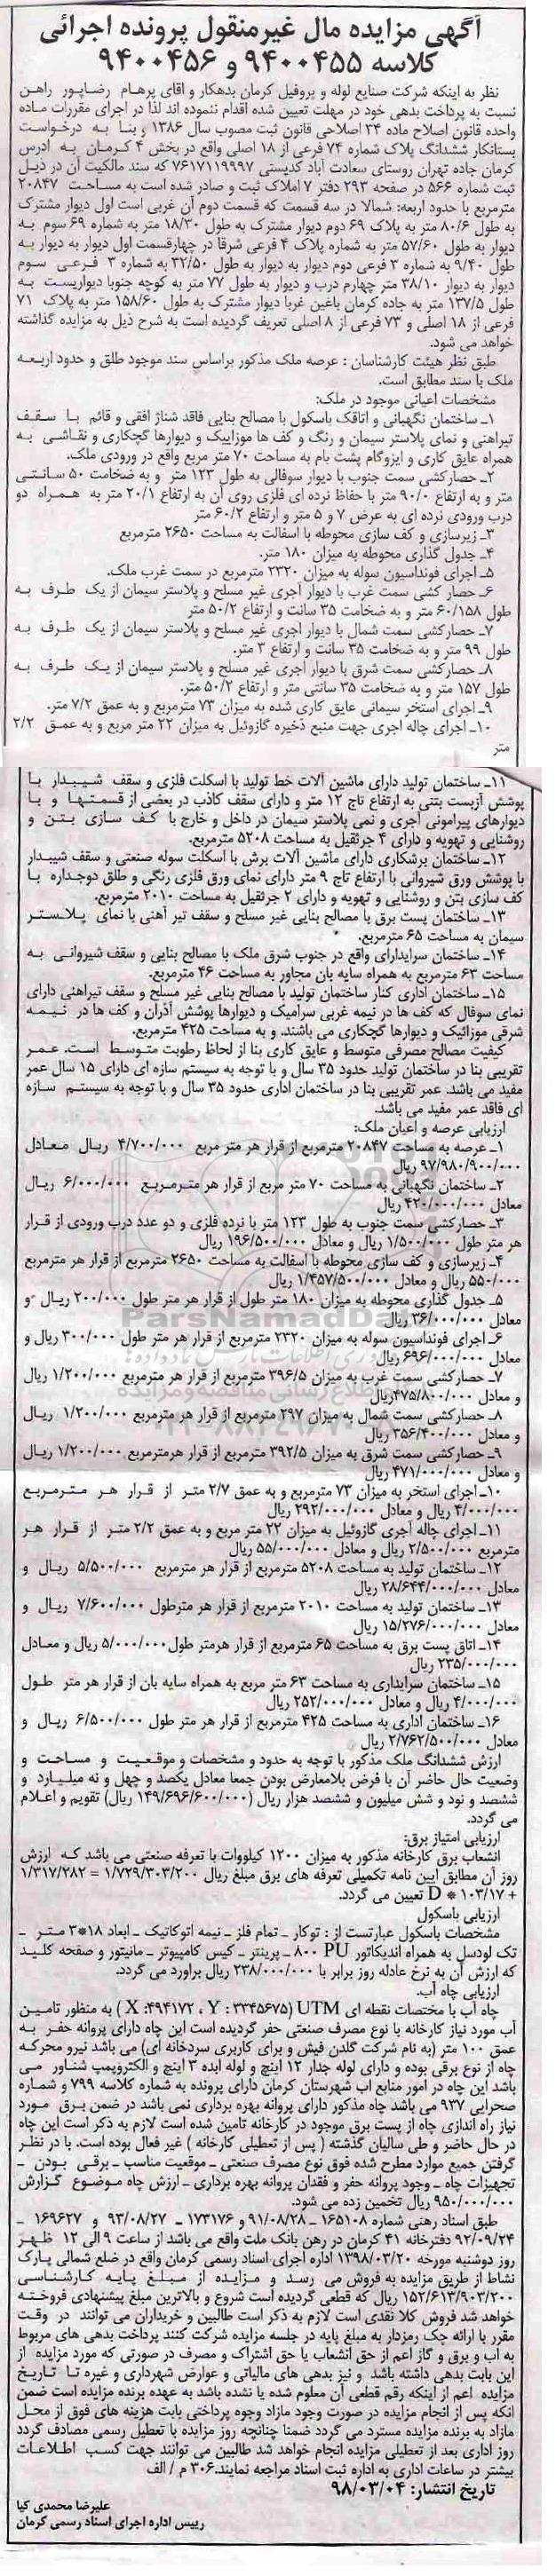 آگهی مزایده مال غیرمنقول پرونده اجرائی
کلاسه ۹۴۰۰۴۵۵ و ۹۴۰۰۴۵۶
نظر به اینکه شرکت صنایع لوله و پروفیل کرمان بدهکار و آقای پرهام رضاپور راهن
نسبت به پرداخت بدهی خود در مهلت تعیین شده اقدام ننموده اند لذا در اجرای مقررات ماده
واحده قانون اصلاح ماده ۳۴ اصلاحی قانون ثبت مصوب سال ۱۳۸۶ و بنا به درخواست
بستانکار ششدانگ پلاک شماره ۷۴ فرعی از ۱۸ اصلی واقع در بخش ۴ کرمان به آدرس
کرمان جاده تهران روستای سعادت آباد کدپستی ۷۶۱۷۱۱۹۹۹۷ که سند مالکیت آن در ذیل
ثبت شماره ۵۶۶ در صفحه ۲۹۳ دفتر ۷ املاک ثبت و صادر شده است به مساحت ۲۰۸۴۷
مترمربع با حدود اربعه: شمالا در سه قسمت که قسمت دوم آن غربی است اول دیوار مشترک
به طول ۸۰/۶ متر به پلاک ۶۹ دوم دیوار مشترک به طول ۱۸/۳۰ متر به شماره ۶۹ سوم به
دیوار به طول ۵۷/۶۰ متر به شماره پلاک ۴ فرعی شرقا در چهارقسمت اول دیوار به دیوار به
طول ۹/۴۰ به شماره ۳ فرعی دوم دیوار به دیوار به طول ۳۲/۵۰ به شماره ۳ فرعی سوم
دیوار به دیوار ۳۸/۱۰ متر چهارم درب و دیوار به طول ۷۷ متر به کوچه جنوبا دیواریست به
طول ۱۳۷/۵ متر به جاده کرمان باغین غربا دیوار مشترک به طول ۱۵۸/۶۰ متر به پلاک ۷۱
فرعی از ۱۸ اصلی و ۷۳ فرعی از ۸ اصلی تعریف گردیده است به شرح ذیل به مزایده گذاشته
خواهد می شود.
طبق نظر هیئت کارشناسان : عرصه ملک مذکور براساس سند موجود طلق و حدود اربعه
ملک با سند مطابق است.
مشخصات اعیانی موجود در ملک:
۱ـ ساختمان نگهبانی و اتاقک باسکول با مصالح بنایی فاقد شناژ افقی و قائم با سقف
تیراهنی و نمای پلاستر سیمان و رنگ و کف ها موزاییک و دیوارها گچکاری و نقاشی به
همراه عایق کاری و ایزوگام پشت بام به مساحت ۷۰ متر مربع واقع در ورودی ملک.
۲ـ حصارکشی سمت جنوب با دیوار سوفالی به طول ۱۲۳ متر و به ضخامت ۵۰ سانتی
متر و به ارتفاع ۹۰/۰ متر با حفاظ نرده ای فلزی روی آن به ارتفاع ۲۰/۱ متر به همراه دو
درب ورودی نرده ای به عرض ۷ و ۵ متر و ارتفاع ۶۰/۲ متر
۳ـ زیرسازی و کف سازی محوطه با اسفالت به مساحت ۲۶۵۰ مترمربع
۴ـ جدول گذاری محوطه به میزان ۱۸۰ متر.
۵ـ اجرای فونداسیون سوله به میزان ۲۳۲۰ مترمربع در سمت غرب ملک.
۶ـ حصار کشی سمت غرب با دیوار آجری غیر مسلح و پلاستر سیمان از یک طرف به
طول ۶۰/۱۵۸ متر و به ضخامت ۳۵ سانت و ارتفاع ۵۰/۲ متر
۷ـ حصارکشی سمت شمال با دیوار آجری غیر مسلح و پلاستر سیمان از یک طرف به
طول ۹۹ متر و به ضخامت ۳۵ سانت و ارتفاع ۳ متر.
۸ـ حصارکشی سمت شرق با دیوار آجری غیر مسلح و پلاستر سیمان از یک طرف به
طول ۱۵۷ متر و به ضخامت ۳۵ سانتی متر و ارتفاع ۵۰/۲ متر.
۹ـ اجرای استخر سیمانی عایق کاری شده به میزان ۷۳ مترمربع و به عمق ۷/۲ متر.
۱۰ـ اجرای چاله آجری جهت منبع ذخیره گازوئیل به میزان ۲۲ متر مربع و به عمق ۲/۲
متر
۱۱ـ ساختمان تولید دارای ماشین آلات خط تولید با اسکلت فلزی و سقف شیبدار با
پوشش آزبست بتنی به ارتفاع تاج ۱۲ متر و دارای سقف کاذب در بعضی از قسمتها و با
دیوارهای پیرامونی آجری و نمی پلاستر سیمان در داخل و خارج با کف سازی بتن و
روشنایی و تهویه و دارای ۴ جرثقیل به مساحت ۵۲۰۸ مترمربع.
۱۲ـ ساختمان برشکاری دارای ماشین آلات برش با اسکلت سوله صنعتی و سقف شیبدار
با پوشش ورق شیروانی با ارتفاع تاج ۹ متر دارای نمای ورق فلزی رنگی و طلق دوجداره با
کف سازی بتن و روشنایی و تهویه و دارای ۲ جرثقیل به مساحت ۲۰۱۰ مترمربع.
۱۳ـ ساختمان پست برق با مصالح بنایی غیر مسلح و سقف تیر آهنی با نمای پلاستر
سیمان به مساحت ۶۵ مترمربع.
۱۴ـ ساختمان سرایدارای واقع در جنوب شرق ملک با مصالح بنایی و سقف شیروانی به
مساحت ۶۳ مترمربع به همراه سایه بان مجاور به مساحت ۴۶ مترمربع.
۱۵ـ ساختمان اداری کنار ساختمان تولید با مصالح بنایی غیر مسلح و سقف تیراهنی دارای
نمای سوفال که کف ها در نیمه غربی سرامیک و دیوارها پوشش آذران و کف ها در نیمه
شرقی موزائیک و دیوارها گچکاری می باشند. و به مساحت ۴۲۵ مترمربع.
کیفیت مصالح مصرفی متوسط و عایق کاری بنا از لحاظ رطوبت متوسط است. عمر
تقریبی بنا در ساختمان تولید حدود ۳۵ سال و با توجه به سیستم سازه ای دارای ۱۵ سال عمر
مفید می باشد. عمر تقریبی بنا در ساختمان اداری حدود ۳۵ سال و با توجه به سیستم سازه
ای فاقد عمر مفید می باشد.
ارزیابی عرصه و اعیان ملک:
۱ـ عرصه به مساحت ۲۰۸۴۷ مترمربع از قرار هر متر مربع ۴/۷۰۰/۰۰۰ ریال معادل
۹۷/۹۸۰/۹۰۰/۰۰۰ ریال
۲ـ ساختمان نگهبانی به مساحت ۷۰ متر مربع از قرار هر مترمربع ۶/۰۰۰/۰۰۰ ریال
معادل ۴۲۰/۰۰۰/۰۰۰ ریال
۳ـ حصارکشی سمت جنوب به طول ۱۲۳ متر با نرده فلزی و دو عدد درب ورودی از قرار
هر متر طول ۱/۵۰۰/۰۰۰ ریال و معادل ۱۹۶/۵۰۰/۰۰۰ ریال
۴ـ زیرسازی و کف سازی محوطه با اسفالت به مساحت ۲۶۵۰ مترمربع از قرار هر مترمربع
۵۵۰/۰۰۰ ریال و معادل ۱/۴۵۷/۵۰۰/۰۰۰ ریال
۵ـ جدول گذاری محوطه به میزان ۱۸۰ متر طول از قرار هر متر طول ۲۰۰/۰۰۰ ریال و
معادل ۳۶/۰۰۰/۰۰۰ ریال
۶ـ اجرای فونداسیون سوله به میزان ۲۳۲۰ مترمربع از قرار هر متر طول ۳۰۰/۰۰۰ ریال و
معادل ۶۹۶/۰۰۰/۰۰۰ ریال
۷ـ حصارکشی سمت غرب به میزان ۳۹۶/۵ مترمربع از قرار هر مترمربع ۱/۲۰۰/۰۰۰ ریال
و معادل ۴۷۵/۸۰۰/۰۰۰ ریال
۸ـ حصارکشی سمت شمال به میزان ۲۹۷ مترمربع از قرار هر مترمربع ۱/۲۰۰/۰۰۰ ریال
و معادل ۳۵۶/۴۰۰/۰۰۰ ریال
۹ـ حصارکشی سمت شرق به میزان ۳۹۲/۵ مترمربع از قرار هرمترمربع ۱/۲۰۰/۰۰۰ ریال
و معادل ۴۷۱/۰۰۰/۰۰۰ ریال
۱۰ـ اجرای استخر به میزان ۷۳ مترمربع و به عمق ۲/۷ متر از قرار هر مترمربع
۴/۰۰۰/۰۰۰ ریال و معادل ۲۹۲/۰۰۰/۰۰۰ ریال
۱۱ـ اجرای چاله آجری گازوئیل به میزان ۲۲ متر مربع و به عمق ۲/۲ متر از قرار هر
مترمربع ۲/۵۰۰/۰۰۰ ریال و معادل ۵۵/۰۰۰/۰۰۰ ریال
۱۲ـ ساختمان تولید به مساحت ۵۲۰۸ مترمربع از قرار هر مترمربع ۵/۵۰۰/۰۰۰ ریال و
معادل ۲۸/۶۴۴/۰۰۰/۰۰۰ ریال
۱۳ـ ساختمان تولید به مساحت ۲۰۱۰ مترمربع از قرار هر مترطول ۷/۶۰۰/۰۰۰ ریال و
معادل ۱۵/۲۷۶/۰۰۰/۰۰۰ ریال
۱۴ـ اتاق پست برق به مساحت ۶۵ مترمربع از قرار هرمتر طول ۵/۰۰۰/۰۰۰ ریال و معادل
۲۳۵/۰۰۰/۰۰۰ ریال
۱۵ـ ساختمان سرایداری به مساحت ۶۳ متر مربع به همراه سایه بان از قرار هر متر طول
۴/۰۰۰/۰۰۰ ریال و معادل ۲۵۲/۰۰۰/۰۰۰ ریال
۱۶ـ ساختمان اداری به مساحت ۴۲۵ مترمربع از قرار هر متر طول ۶/۵۰۰/۰۰۰ ریال و
معادل ۲/۷۶۲/۵۰۰/۰۰۰ ریال
ارزش ششدانگ ملک مذکور با توجه به حدود و مشخصات و موقعیت و مساحت و
وضعیت حال حاضر آن با فرض بلامعارض بودن جمعا معادل یکصد و چهل و نه میلیارد و
ششصد و نود و شش میلیون و ششصد هزار ریال (۱۴۹/۶۹۶/۶۰۰/۰۰۰ ریال) تقویم و اعلام
می گردد.
ارزیابی امتیاز برق:
انشعاب برق کارخانه مذکور به میزان ۱۲۰۰ کیلووات با تعرفه صنعتی می باشد که ارزش
روز آن مطابق آیین نامه تکمیلی تعرفه های برق مبلغ ریال ۱/۷۲۹/۳۰۳/۲۰۰ = ۱/۳۱۷/۲۸۲
+ ۱۰۳/۱۷ * D تعیین می گردد.
ارزیابی باسکول
مشخصات باسکول عبارتست از : توکار ـ تمام فلز ـ نیمه اتوکاتیک ـ ابعاد ۱۸*۳ متر ـ
تک لودسل به همراه اندیکاتور PU ۸۰۰ ـ پرینتر ـ کیس کامپیوتر ـ مانیتور و صفحه کلید
که ارزش آن به نرخ عادله روز برابر با ۲۳۸/۰۰۰/۰۰۰ ریال براورد می گردد.
ارزیابی چاه آب.
چاه آب با مختصات نقطه ای UTM (X :۴۹۴۱۷۲ ، Y : ۳۳۴۵۶۷۵) به منظور تامین
آب مورد نیاز کارخانه با نوع مصرف صنعتی حفر گردیده است این چاه دارای پروانه حفر به
عمق ۱۰۰ متر (به نام شرکت گلدن فیش و برای کاربری سردخانه ای) می باشد نیرو محرکه
چاه از نوع برقی بوده و دارای لوله جدار ۱۲ اینچ و لوله ابده ۳ اینچ و الکتروپمپ شناور می
باشد این چاه در امور منابع آب شهرستان کرمان دارای پرونده به شماره کلاسه ۷۹۹ و شماره
صحرایی ۹۳۷ می باشد چاه مذکور دارای پروانه بهره برداری نمی باشد در ضمن برق مورد
نیاز راه اندازی چاه از پست برق موجود در کارخانه تامین شده است لازم به ذکر است این چاه
در حال حاضر و طی سالیان گذشته ( پس از تعطیلی کارخانه ) غیر فعال بوده است. با در نظر
گرفتن جمیع موارد مطرح شده فوق نوع مصرف صنعتی ـ موقعیت مناسب ـ برقی بودن ـ
تجهیزات چاه ـ وجود پروانه حفر و فقدان پروانه بهره برداری ـ ارزش چاه موضوع گزارش
۹۵۰/۰۰۰/۰۰۰ ریال تخمین زده می شود.
طبق اسناد رهنی شماره ۱۶۵۱۰۸ ـ ۹۱/۰۸/۲۸ و ۱۷۳۱۷۶ ـ ۹۳/۰۸/۲۷ و ۱۶۹۶۲۷ ـ
۹۲/۰۹/۲۴ دفترخانه ۴۱ کرمان در رهن بانک ملت واقع می باشد از ساعت ۹ الی ۱۲ ظهر
روز دوشنبه مورخه ۱۳۹۸/۰۳/۲۰ اداره اجرای اسناد رسمی کرمان واقع در ضلع شمالی پارک
نشاط از طریق مزایده به فروش می رسد و مزایده از مبلغ پایه کارشناسی
۱۵۲/۶۱۳/۹۰۳/۲۰۰ ریال که قطعی گردیده است شروع و بالاترین مبلغ پیشنهادی فروخته
خواهد شد فروش کلا نقدی است لازم به ذکر است طالبین و خریداران می توانند در وقت
مقرر با ارائه چک رمزدار به مبلغ پایه در جلسه مزایده شرکت کنند پرداخت بدهی های مربوط
به آب و برق و گاز اعم از حق انشعاب یا حق اشتراک و مصرف در صورتی که مورد مزایده از
این بابت بدهی داشته باشد و نیز بدهی های مالیاتی و عوارض شهرداری و غیره تا تاریخ
مزایده اعم از اینکه رقم قطعی آن معلوم شده یا نشده باشد به عهده برنده مزایده است ضمن
آنکه پس از انجام مزایده در صورت وجود مازاد وجوه پرداختی بابت هزینه های فوق از محل
مازاد به برنده مزایده مسترد می گردد ضمنا چنانچه روز مزایده با تعطیل رسمی مصادف گردد
روز اداری بعد از تعطیلی مزایده انجام خواهد شد طالبین می توانند جهت کسب اطلاعات
بیشتر در ساعات اداری به اداره ثبت اسناد مراجعه نمایند.۳۰۶ م / الف
تاریخ انتشار: ۹۸/۰۳/۰۴
علیرضا محمدی کیا
رییس اداره اجرای اسناد رسمی کرمان
ParsNamadData